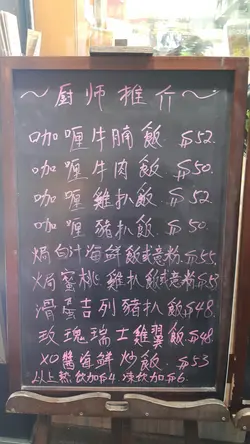 ～厨师推介～
咖喱牛腩飯 $52
咖喱牛肉飯 $50
咖喱雞扒飯 $52
咖喱豬扒飯 $50
焗白汁海鮮飯或意粉 $55
焗蜜桃雞扒飯或意粉 $53
滑蛋吉列豬扒飯 $48
玫瑰瑞士雞翼飯 $48
XO醬海鮮炒飯 $53
以上熱飲加$4 凍飲加$6